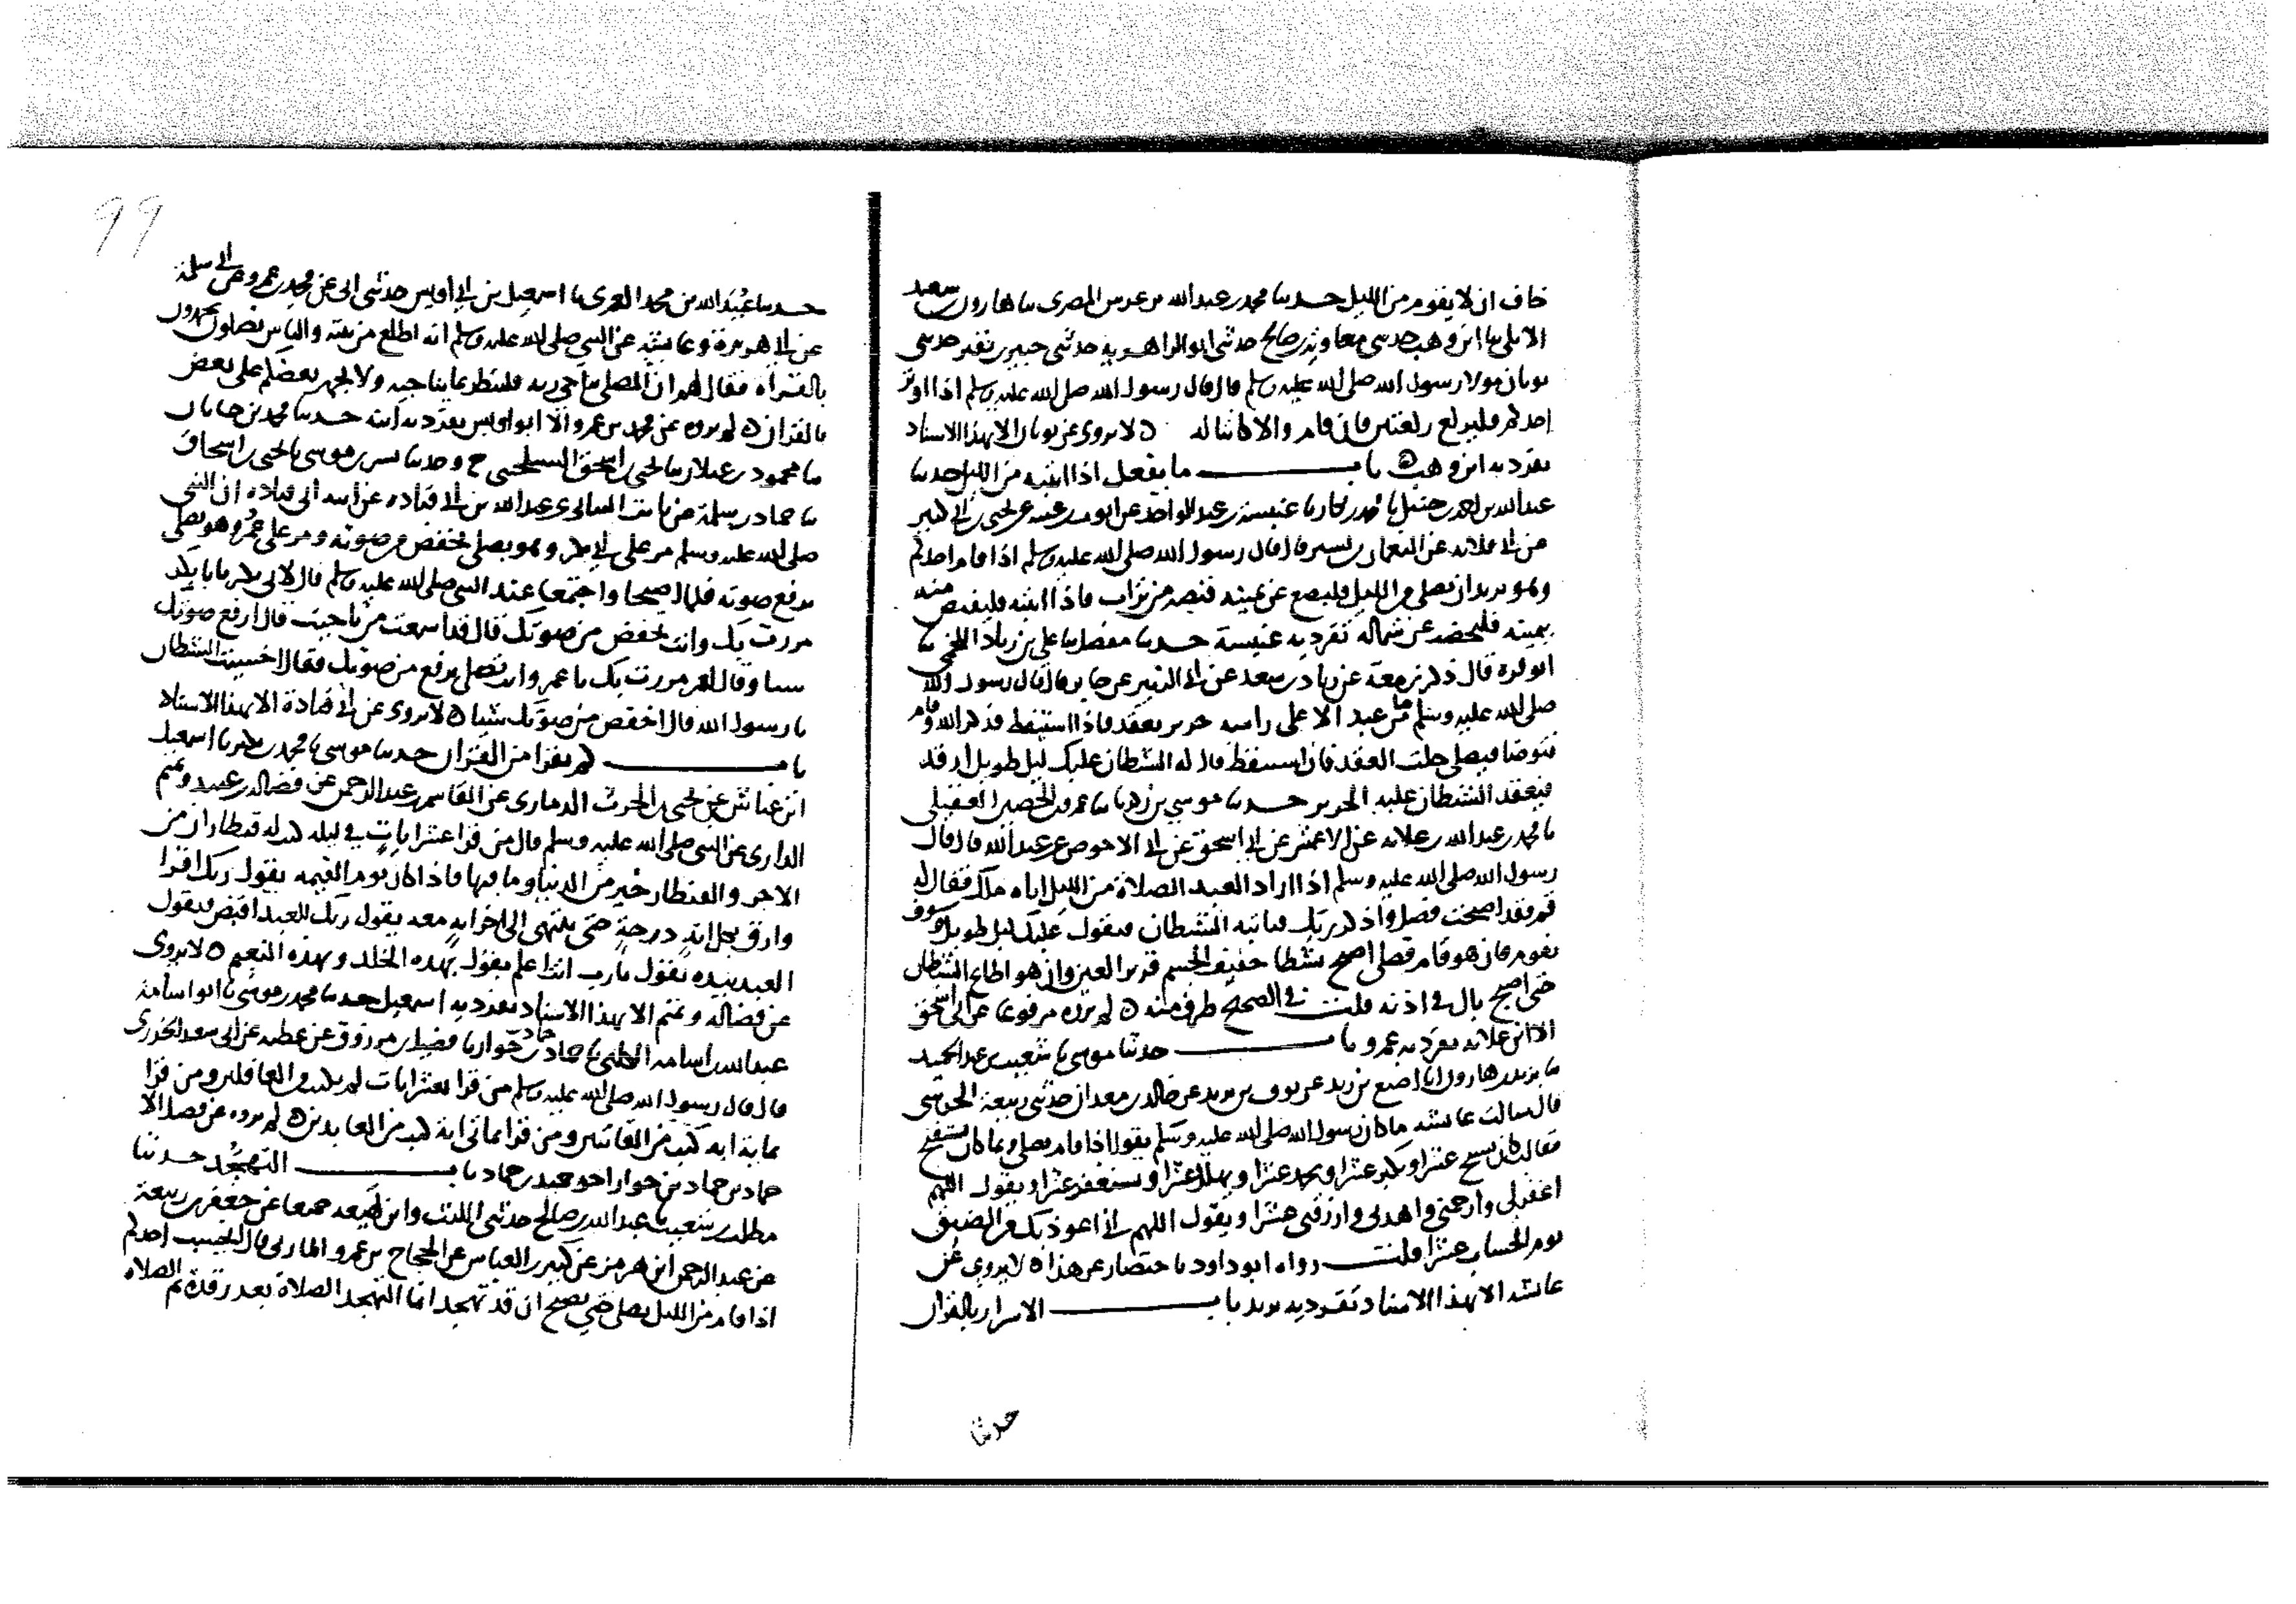 خاف ان لا يقوم من الليل حدثنا محمد بن عبد الله بن عرس المصري ثنا هارون بن سعيد
الايلي ثنا ابن وهب حدثني معاوية بن صالح حدثني ابو الزاهرية حدثني جبير بن نفير حدثني
ثوبان مولا رسول الله صلى الله عليه وسلم قال قال رسول الله صلى الله عليه وسلم اذا اوتر
احدكم فليركع ركعتين فان قام والا كانتا له ه لا يروى عن ثوبان الا بهذا الاسناد
تفرد به ابن وهب باب ما يفعل اذا انتبه من الليل حدثنا
عبد الله بن احمد بن حنبل ثنا محمد بن بكار ثنا عنبسة بن عبد الواحد عن ايوب بن عتبة عن يحيى بن ابي كثير
عن ابي قلابة عن النعمان بن بشير قال قال رسول الله صلى الله عليه وسلم اذا قام احدكم
وهو يريد ان يصلي من الليل فليضع عن يمينه قبضة من تراب فاذا انتبه فليقبض منه
بيمينه فليحصب عن شماله تفرد به عنبسة حدثنا مفضل ثنا علي بن زياد اللحجي ثنا
ابو قرة قال ذكر زمعة عن زياد بن سعد عن ابي الزبير عن جابر قال قال رسول الله
صلى الله عليه وسلم ما من عبد الا على راسه جرير يعقد فاذا استيقظ فذكر الله وقام
فتوضا فيصلي حلت العقد فان استيقظ قال له الشيطان عليك ليل طويل ارقد
فيعقد الشيطان عليه الجرير حدثنا موسى بن زكريا ثنا عمرو بن الحصين العقيلي
ثنا محمد بن عبد الله بن علاثة عن الاعمش عن ابي اسحق عن ابي الاحوص عن عبد الله قال قال
رسول الله صلى الله عليه وسلم اذا اراد العبد الصلاة من الليل اتاه ملك فقال له
قم فقد اصبحت فصل واذكر ربك فياتيه الشيطان فيقول عليك ليل طويل وسوف
تقوم فان هو قام فصلى اصبح نشطا خفيف الجسم قرير العين وان هو اطاع الشيطان
حتى اصبح بال في اذنه قلت في الصحيح طرف منه ه لم يروه مرفوعا عن ابي اسحق
الا ابن علاثة تفرد به عمرو باب حدثنا موسى ثنا شعيب بن عبد الحميد
ثنا يزيد بن هارون انا اصبغ بن زيد عن ثور بن يزيد عن خالد بن معدان حدثني ربيعة الجرشي
قال سالت عائشة ما كان رسول الله صلى الله عليه وسلم يقول اذا قام يصلي وبما كان يستفتح
فقالت كان يسبح عشرا ويكبر عشرا ويحمد عشرا ويهلل عشرا ويستغفر عشرا ويقول اللهم
اغفر لي وارحمني واهدني وارزقني عشرا ويقول اللهم اني اعوذ بك من الضيق
يوم الحساب عشرا قلت رواه ابو داود باختصار عن هذا ه لا يروى عن
عائشة الا بهذا الاسناد تفرد به يزيد باب الاسرار بالقران
حدثنا
99
حدثنا عبيد الله بن محمد العمري ثنا اسمعيل بن ابي اويس حدثني ابي عن محمد بن عمرو عن ابي سلمة
عن ابي هريرة وعائشة عن النبي صلى الله عليه وسلم انه اطلع من بيته والناس يصلون يجهرون
بالقراة فقال لهم ان المصلي يناجي ربه فلينظر بما يناجيه ولا يجهر بعضكم على بعض
بالقران ه لم يروه عن محمد بن عمرو الا ابو اويس تفرد به ابنه حدثنا محمد بن جابان
ثنا محمود بن غيلان ثنا يحيى بن اسحق السيلحيني ح وحدثنا بشر بن موسى ثنا يحيى بن اسحاق
ثنا حماد بن سلمة عن ثابت البناني عن عبد الله بن ابي قتادة عن ابيه ابي قتادة ان النبي
صلى الله عليه وسلم مر على ابي بكر وهو يصلي يخفض من صوته ومر على عمر وهو يصلي
يرفع صوته فلما اصبحا واجتمعا عند النبي صلى الله عليه وسلم قال لابي بكر يا ابا بكر
مررت بك وانت تخفض من صوتك قال قد اسمعت من ناجيت قال ارفع صوتك
شيئا وقال لعمر مررت بك يا عمر وانت تصلي ترفع من صوتك فقال احتسبت الشيطان
يا رسول الله قال اخفض من صوتك شيئا ه لا يروى عن ابي قتادة الا بهذا الاسناد
باب كم يقرا من القران حدثنا موسى ثنا محمد بن بكير ثنا اسمعيل
ابن عياش عن يحيى بن الحرث الذماري عن القاسم بن عبد الرحمن عن فضالة بن عبيد وتميم
الداري عن النبي صلى الله عليه وسلم قال من قرا عشر ايات في ليلة كتب له قنطار من
الاجر والقنطار خير من الدنيا وما فيها فاذا كان يوم القيمة يقول ربك اقرا
وارق بكل اية درجة حتى ينتهي الى اخر اية معه يقول ربك للعبد اقبض فيقول
العبد بيده فيقول يا رب انت اعلم يقول بهذه الخلد وبهذه النعيم ه لا يروى
عن فضالة وتميم الا بهذا الاسناد تفرد به اسمعيل حدثنا محمد بن موسى ثنا ابو اسامة
عبد الله بن اسامة الكلبي ثنا حماد بن حماد بن خوار ثنا فضيل بن مرزوق عن عطية عن ابي سعيد الخدري
قال قال رسول الله صلى الله عليه وسلم من قرا بعشر ايات لم يكتب من الغافلين ومن قرا
بماية اية كتب من القانتين ومن قرا بمائتي اية كتب من العابدين ه لم يروه عن فضيل الا
حماد بن حماد بن خوار اخو حميد بن حماد باب التهجد حدثنا
مطلب بن شعيب ثنا عبد الله بن صالح حدثني الليث وابن لهيعة جميعا عن جعفر بن ربيعة
عن عبد الرحمن ابن هرمز عن كثير بن العباس عن الحجاج بن عمرو المازني قال ايحسب احدكم
اذا قام من الليل يصلي حتى يصبح ان قد تهجد انما التهجد الصلاة بعد رقدة ثم الصلاة